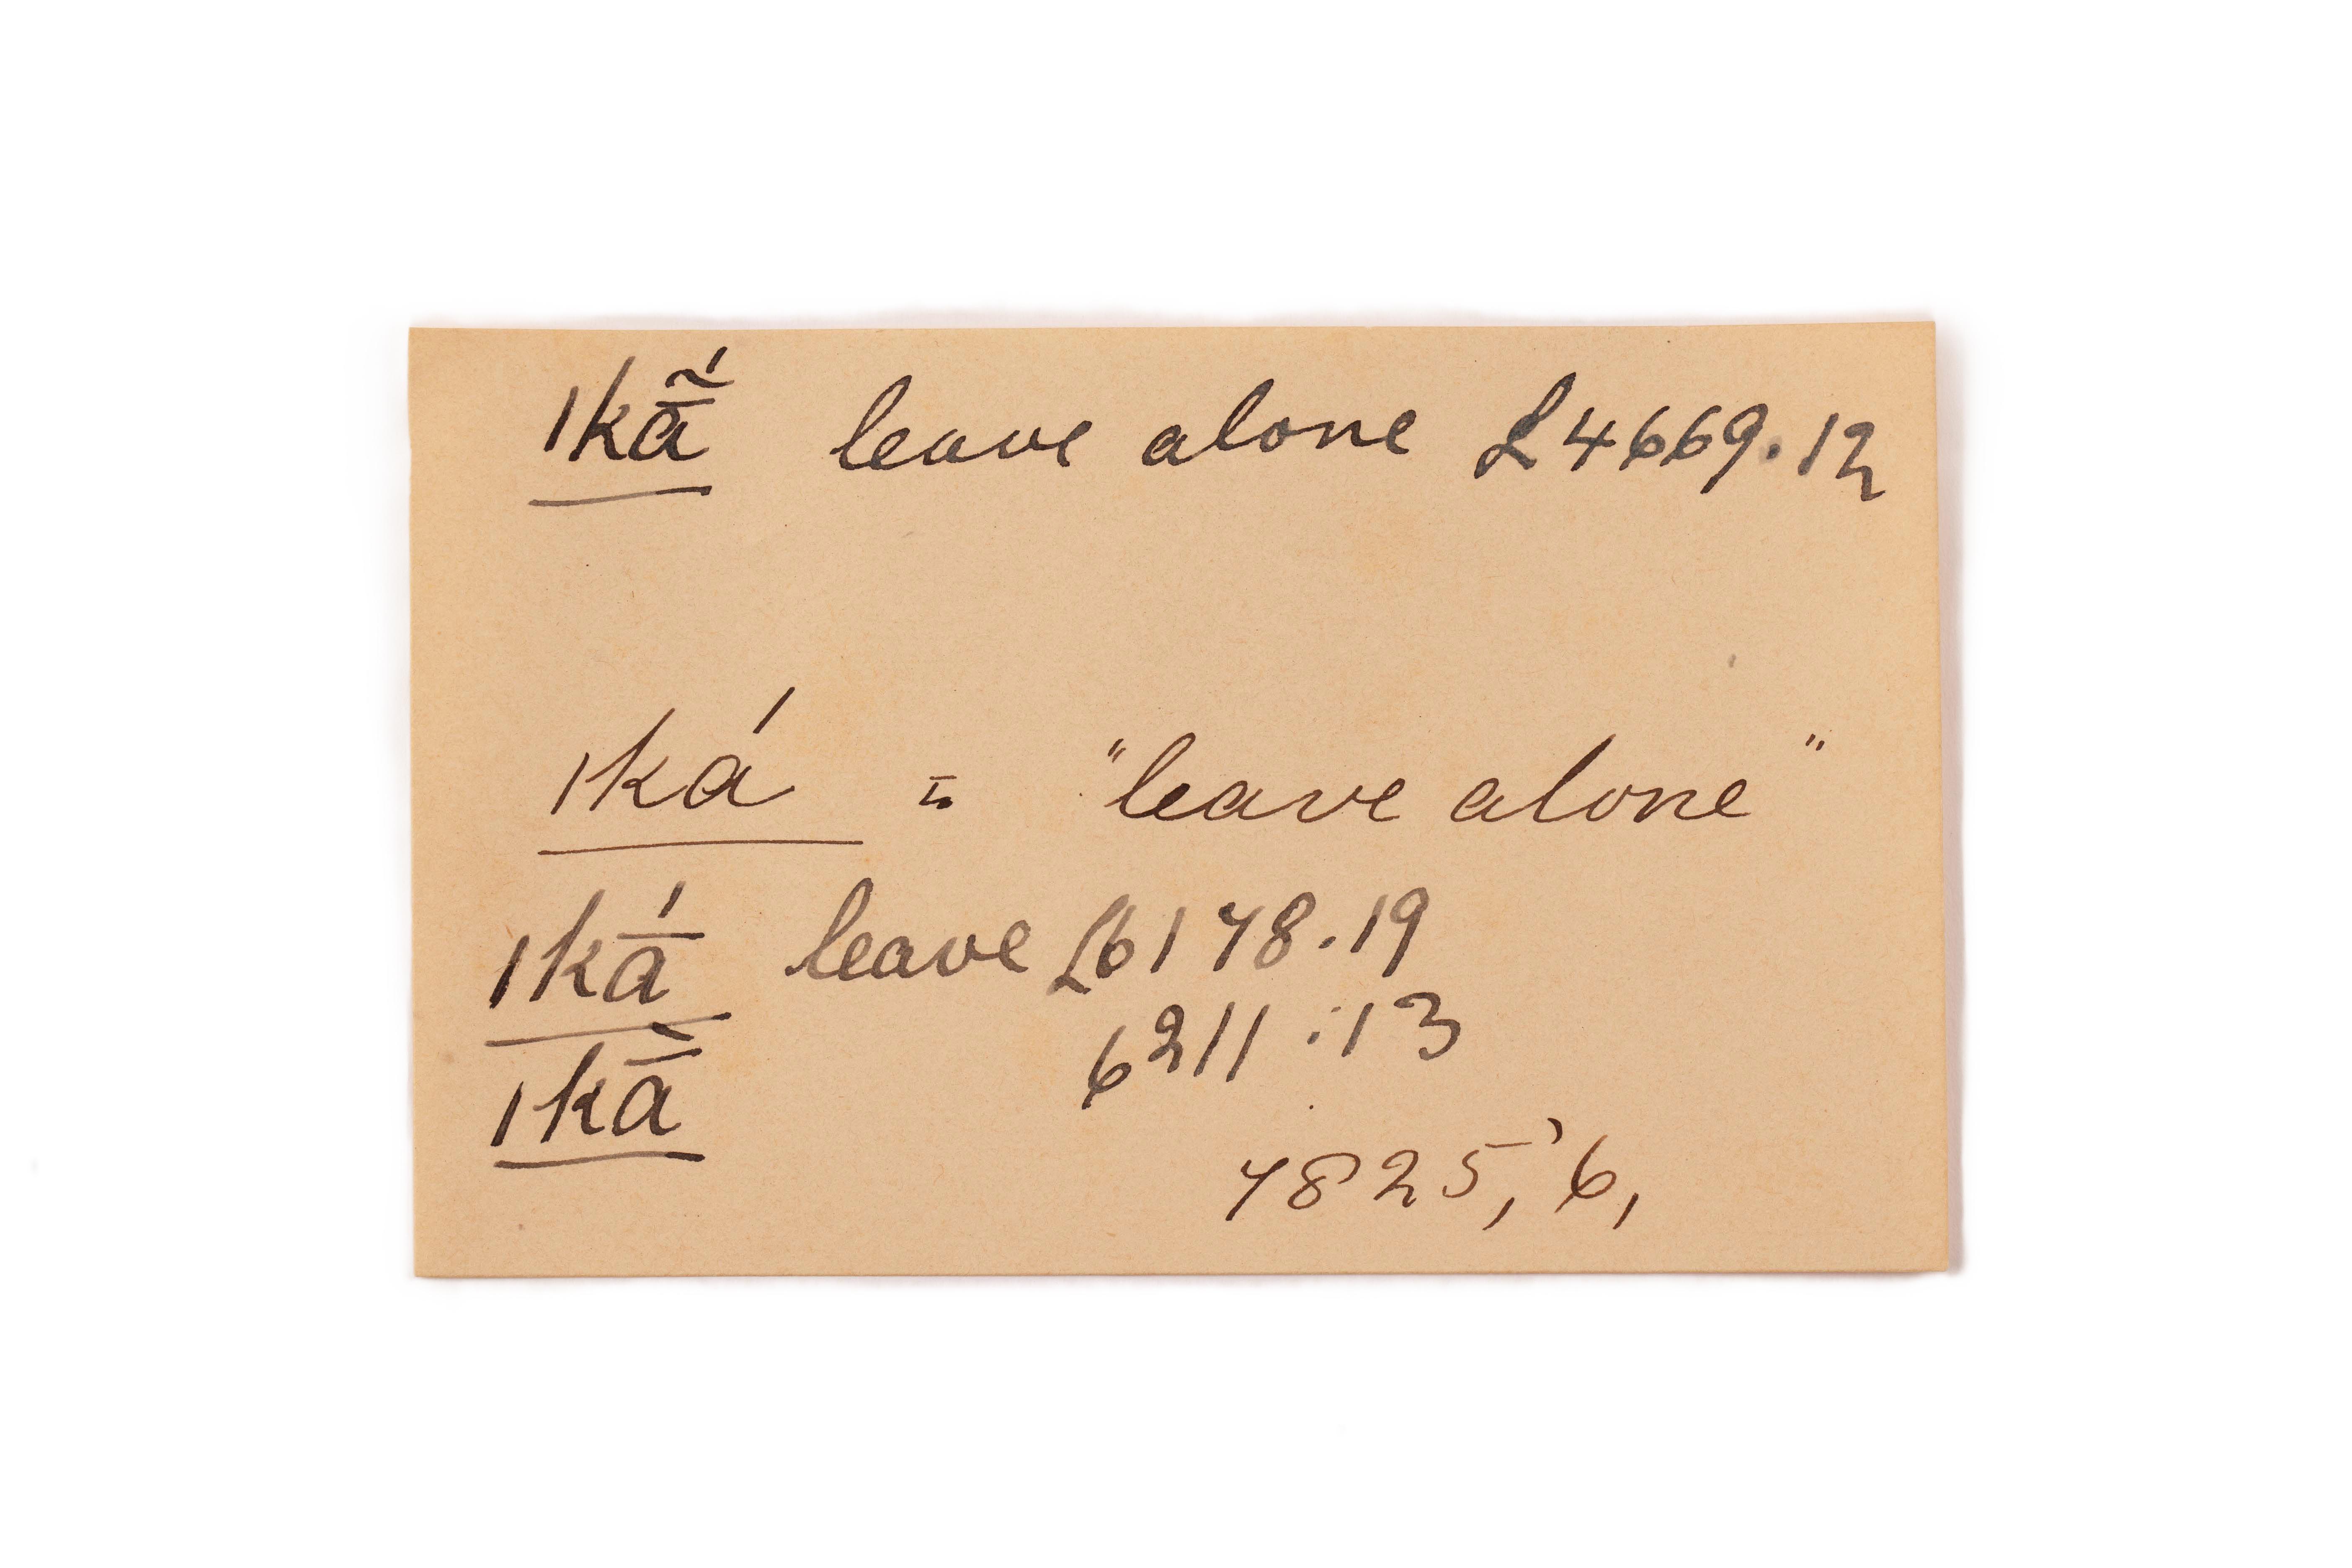 ǀkā̃́ leave alone L4669.12
ǀká = "leave alone"
ǀkā́ leave L6178.19
6211.13
ǀkā̀
7825, 6,